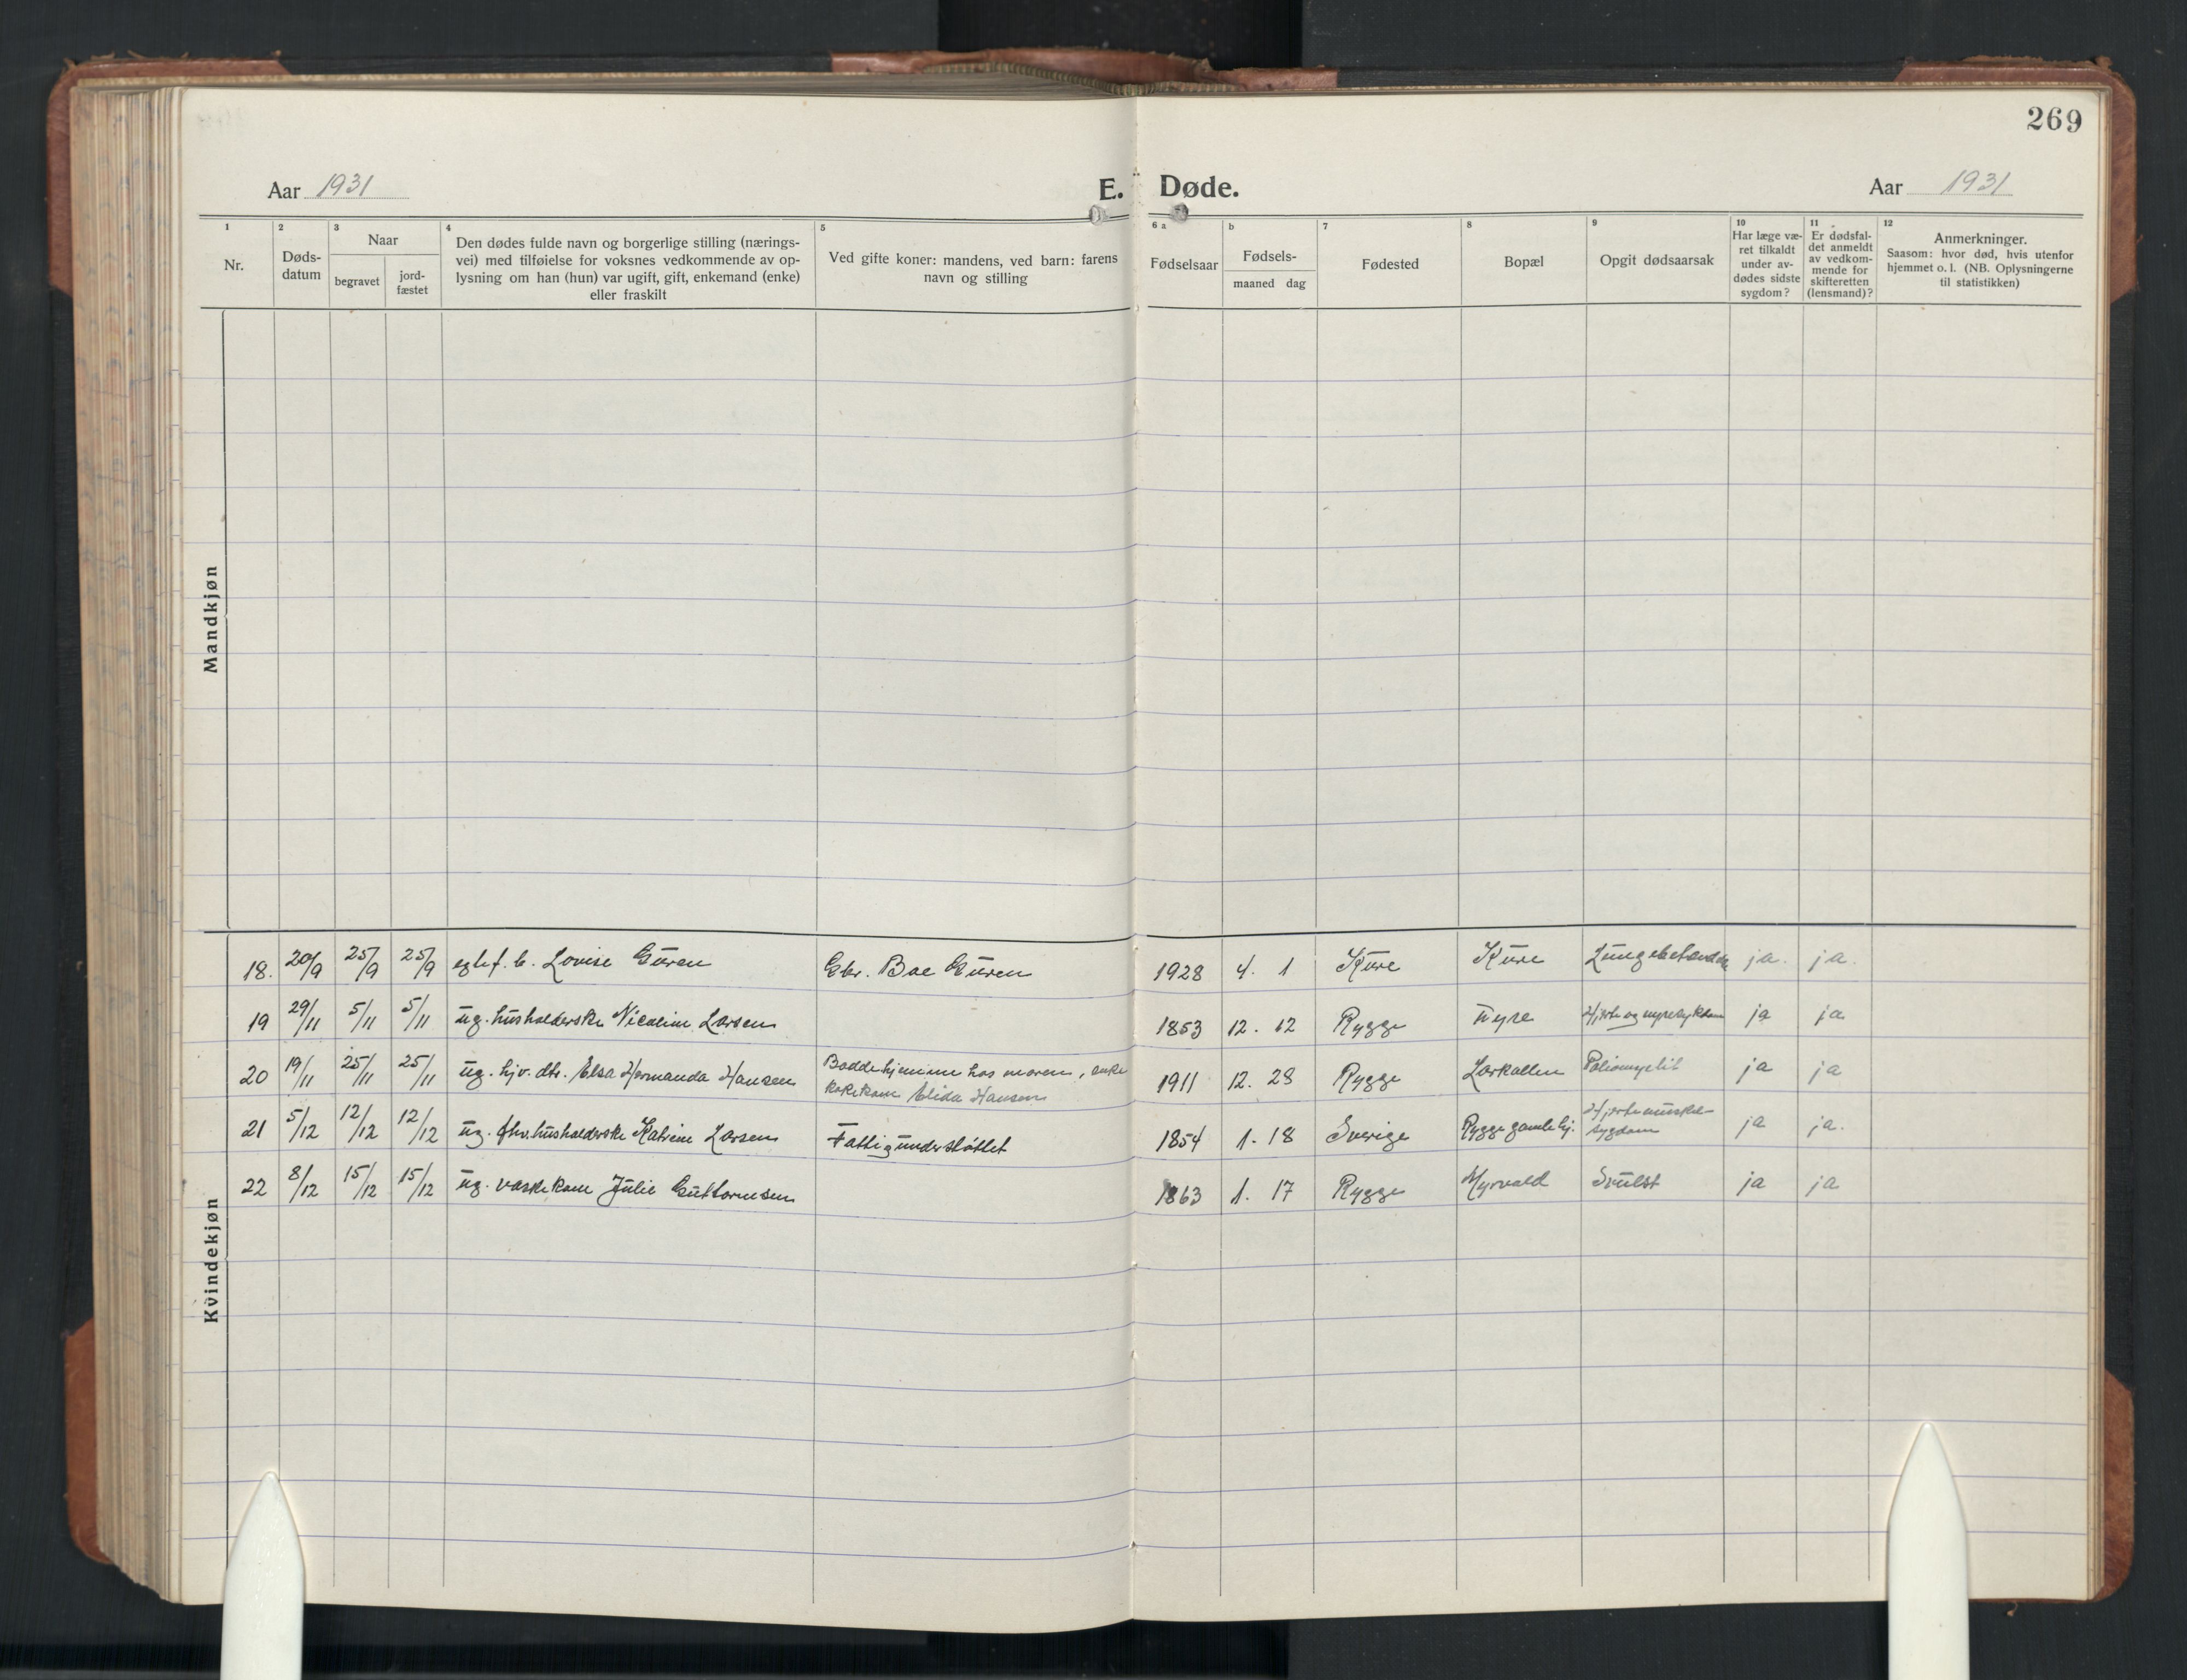 269
Aar 1931
E. Døde.
Aar 1931
1 2 3 4 5 6 a b 7 8 9 10 11 12
Nr.
Døds-
datum
Naar
begravet
jord-
fæstet
Den dødes fulde navn og borgerlige stilling (nærings-
vei) med tilføielse for voksnes vedkommende av op-
lysning om han (hun) var ugift, gift, enkemand (enke)
eller fraskilt
Ved gifte koner: mandens, ved barn: farens
navn og stilling
Fødselsaar
Fødsels-
maaned dag
Fødested
Bopæl
Opgit dødsaarsak
Har læge væ-
ret tilkaldt
under av-
dødes sidste
sygdom?
Er dødsfal-
det anmeldt
av vedkom-
mende for
skifteretten
(lensmand)?
Anmerkninger.
Saasom: hvor død, hvis utenfor
hjemmet o. l. (NB. Oplysningerne
til statistikken)
Mandkjøn
Kvindekjøn
18. 20/9 25/9 25/9 egtef. b. Lovise Guren Gbr. Boe Guren 1928 4. 1 Kure Kure ja. ja.
19 29/11 5/11 5/11 ug. husholderske Nicoline Larsen 1853 12. 12 Rygge Hjerte og nyresykdom ja ja
20 19/11 25/11 25/11 ug. hjv. dtr. Elsa Hermanda Hansen Bodde hjemme hos moren, enke
kokekone Elida Hansen 1911 12. 28 Rygge Larkollen Poliomyelit ja ja
21 5/12 12/12 12/12 ug. fhv. husholderske Katrine Larsen Fattigunderstøttet 1854 1. 18 Sverige Rygge gamlehj. Hjertemuskel-
sygdom ja ja.
22 8/12 15/12 15/12 ug. vaskekone Julie Guttormsen 1863 1. 17 Rygge Myrvold Svulst ja ja